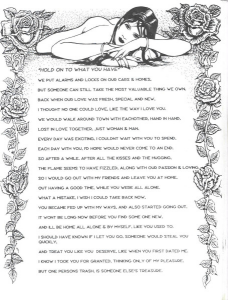 "HOLD ON TO WHAT YOU HAVE"
WE PUT ALARMS AND LOCKS ON OUR CARS & HOMES,
BUT SOMEONE CAN STILL TAKE THE MOST VALUABLE THING WE OWN.
BACK WHEN OUR LOVE WAS FRESH, SPECIAL AND NEW,
I THOUGHT NO ONE COULD LOVE, LIKE THE WAY I LOVE YOU.
WE WOULD WALK AROUND TOWN WITH EACHOTHER, HAND IN HAND,
LOST IN LOVE TOGETHER, JUST WOMAN & MAN.
EVERY DAY WAS EXCITING, I COULDN'T WAIT WITH YOU TO SPEND,
EACH DAY WITH YOU I'D HOPE WOULD NEVER COME TO AN END.
SO AFTER A WHILE, AFTER ALL THE KISSES AND THE HUGGING,
THE FLAME SEEMS TO HAVE FIZZLED, ALONG WITH OUR PASSION & LOVING.
SO I WOULD GO OUT WITH MY FRIENDS AND LEAVE YOU AT HOME,
OUT HAVING A GOOD TIME, WHILE YOU WERE ALL ALONE.
WHAT A MISTAKE, I WISH I COULD TAKE BACK NOW,
YOU BECAME FED UP WITH MY WAYS, AND ALSO STARTED GOING OUT.
IT WON'T BE LONG NOW BEFORE YOU FIND SOME ONE NEW,
AND I'LL BE HOME ALL ALONE & BY MYSELF, LIKE YOU USED TO.
I SHOULD HAVE KNOWN IF I LET YOU GO, SOMEONE WOULD STEAL YOU
QUICKLY,
AND TREAT YOU LIKE YOU DESERVE, LIKE WHEN YOU FIRST DATED ME.
I KNOW I TOOK YOU FOR GRANTED, THINKING ONLY OF MY PLEASURE,
BUT ONE PERSONS TRASH, IS SOMEONE ELSE'S TREASURE.